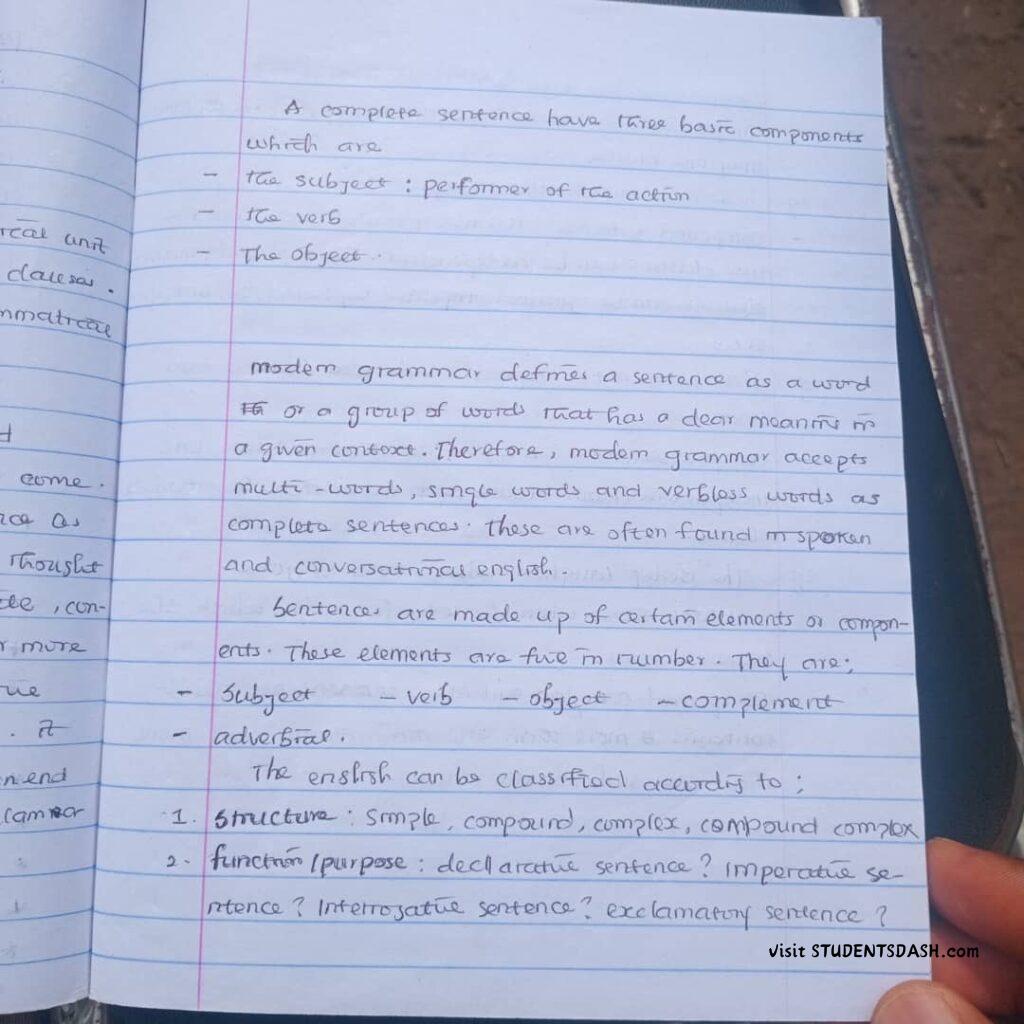 rical unit
clauses.
mmatical
d
come.
nce as
thought
ete, con-
r more
rue
. it
n end
cannor
A complete sentence have three basic components
which are
- the subject : performer of the action
- the verb
- The object.
modern grammar defines a sentence as a word
or a group of words that has a clear meaning in
a given context. Therefore, modern grammar accepts
multi-words, single words and verbless words as
complete sentences. These are often found in spoken
and conversational english.
Sentences are made up of certain elements or compon-
ents. These elements are five in number. They are;
- Subject - verb - object - complement
- adverbial.
The english can be classified according to;
1. Structure : Simple, compound, complex, compound complex
2. function/purpose : declarative sentence? Imperative se-
ntence? Interrogative sentence? exclamatory sentence?
visit STUDENTSDASH.com